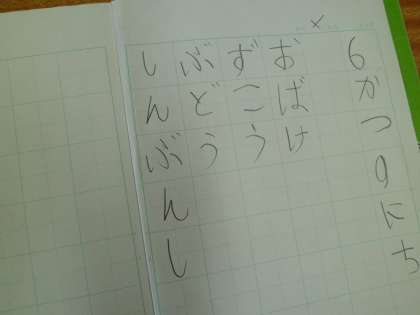 6がつ9にち
おばけ
ずこう
ぶどう
しんぶんし